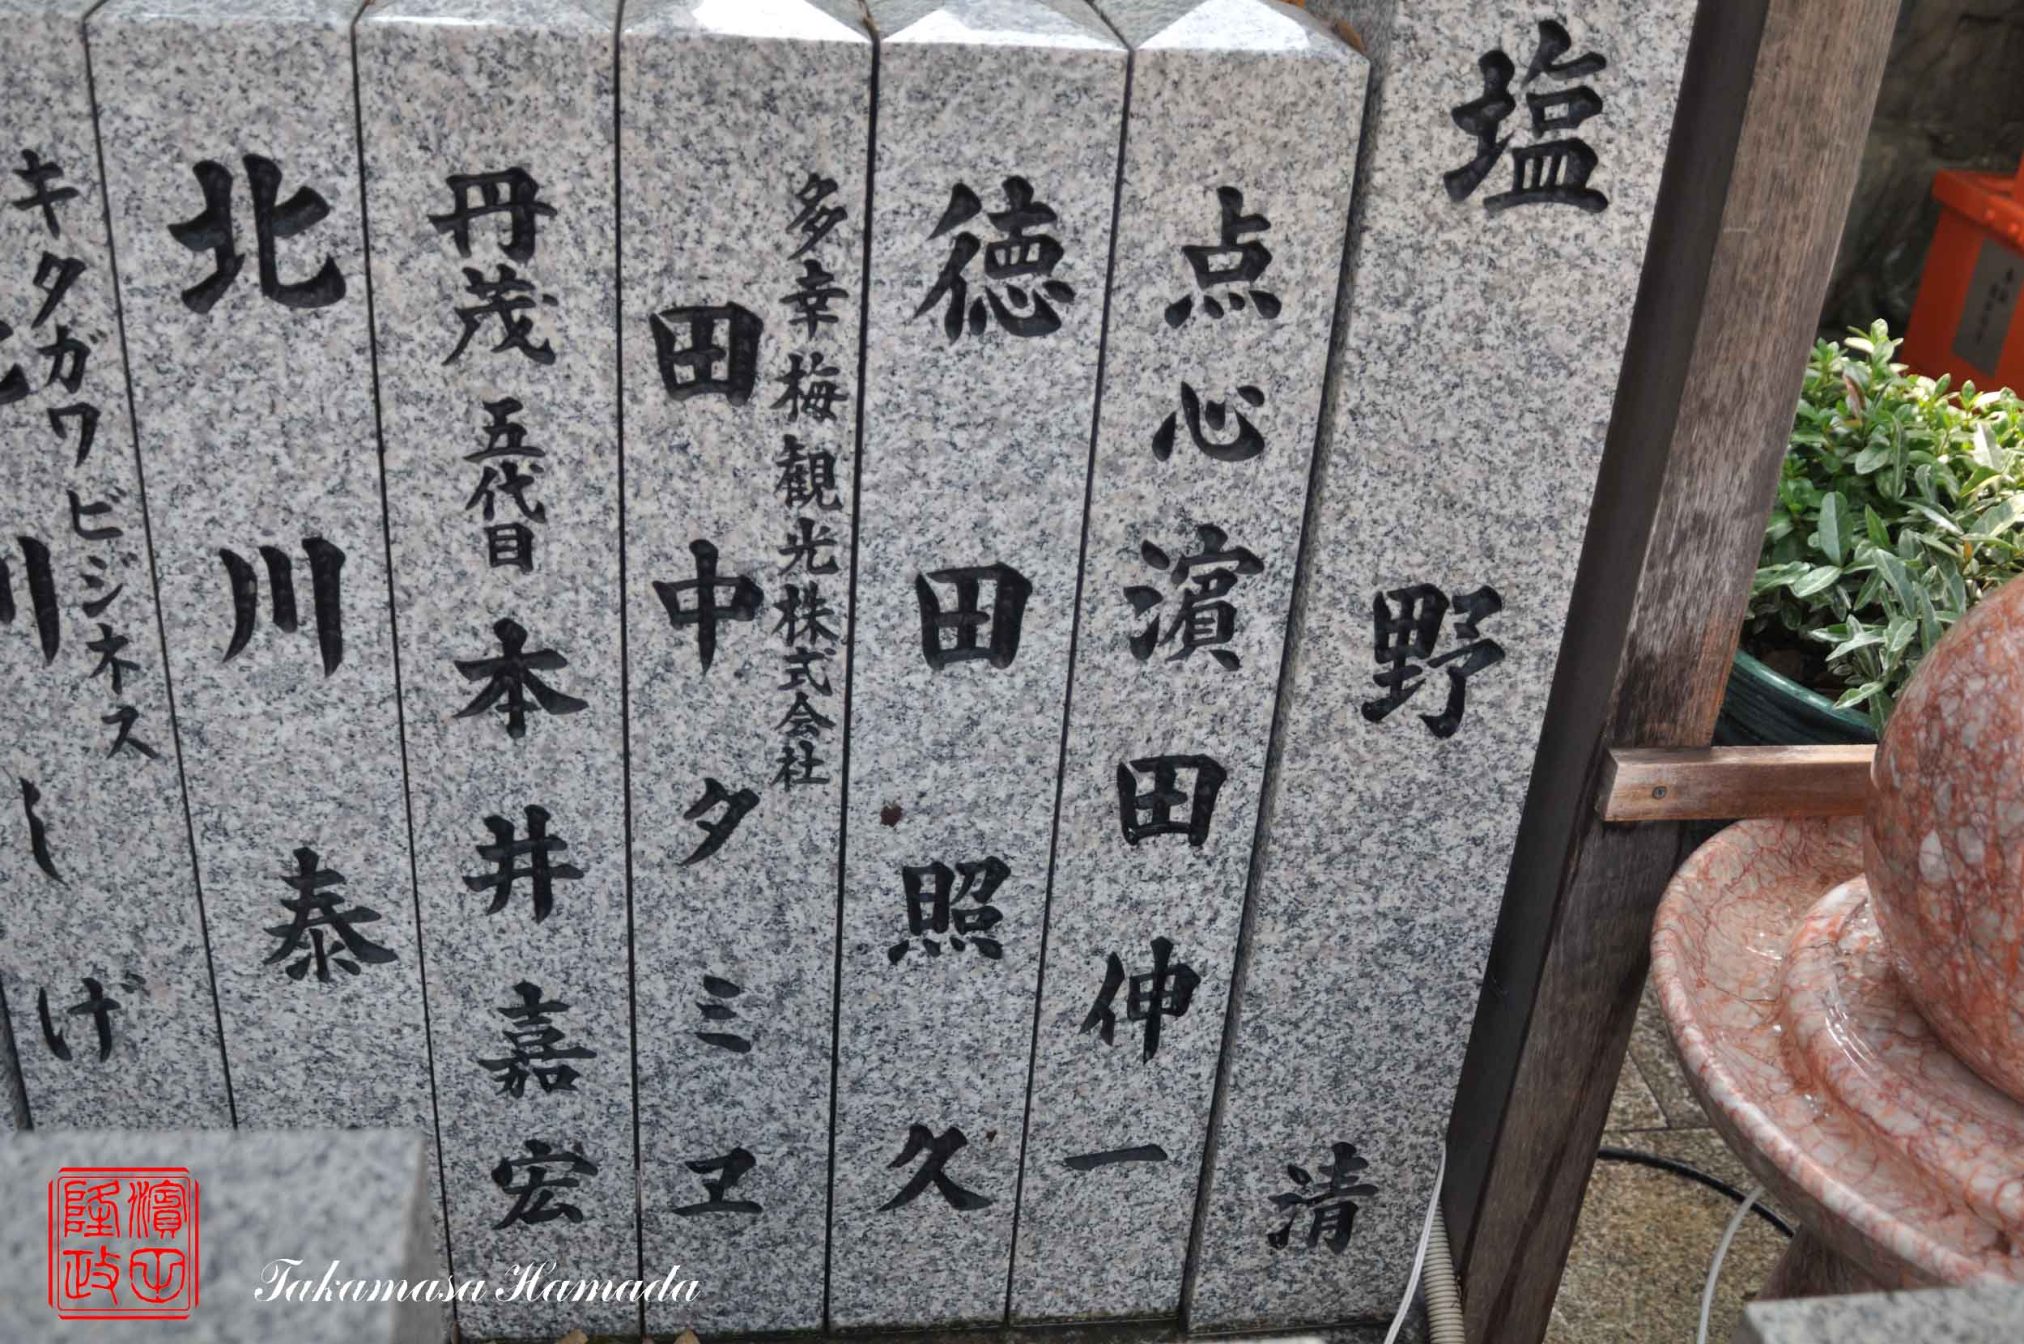 塩野 清
点心 濱田伸一
徳田照久
多幸梅観光株式会社
田中タミヱ
丹茂 五代目 本井嘉宏
北川 泰
キタガワビジネス
川しげ
濱田
隆政
Takamasa Hamada